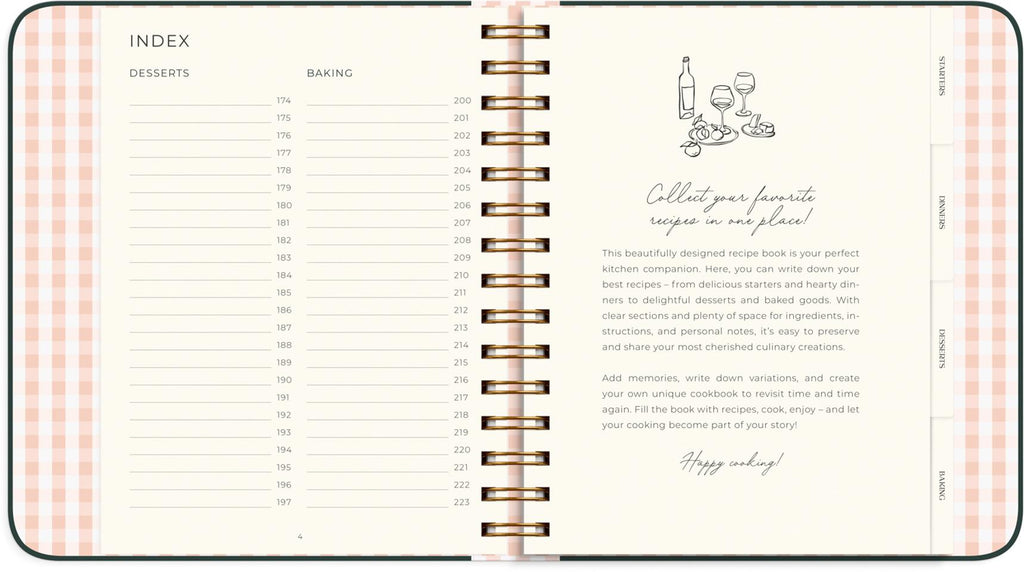 INDEX
DESSERTS
174
175
176
177
178
179
180
181
182
183
184
185
186
187
188
189
190
191
192
193
194
195
196
197
BAKING
200
201
202
203
204
205
206
207
208
209
210
211
212
213
214
215
216
217
218
219
220
221
222
223
4
Collect your favorite
recipes in one place!
This beautifully designed recipe book is your perfect
kitchen companion. Here, you can write down your
best recipes – from delicious starters and hearty din-
ners to delightful desserts and baked goods. With
clear sections and plenty of space for ingredients, in-
structions, and personal notes, it's easy to preserve
and share your most cherished culinary creations.
Add memories, write down variations, and create
your own unique cookbook to revisit time and time
again. Fill the book with recipes, cook, enjoy – and let
your cooking become part of your story!
Happy cooking!
STARTERS
DINNERS
DESSERTS
BAKING